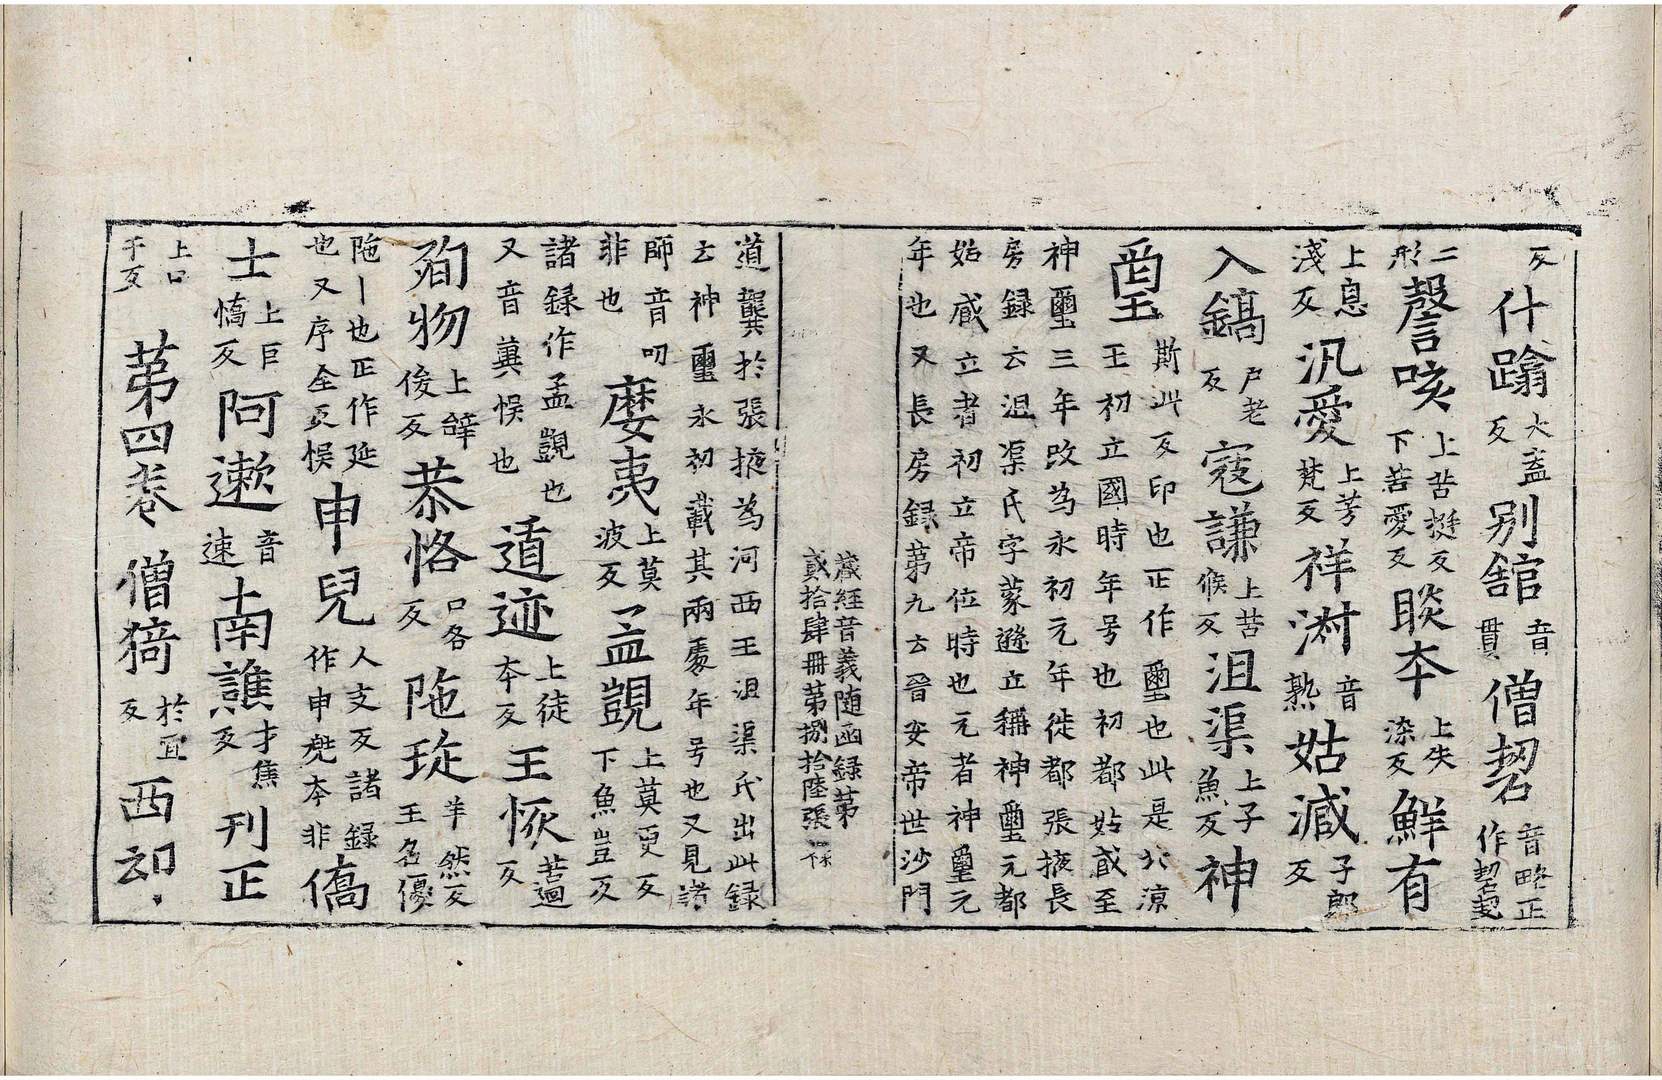 反什蹹大盖反別舘音貫僧㓶音略正作㓶
二形謦咳上苦挺反下苦愛反睒夲上失染反鮮有
上息淺反汎愛上芳梵反祥澍音熟姑臧子郎反
入鎬戸老反寇謙上苦候反沮渠上子魚反神
璽斯此反印也正作璽也此是北涼王初立國時年号也初都姑臧至
神璽三年改為永初元年徙都張掖長
房録云沮渠氏字蒙遜立稱神璽元都
姑臧立者初立帝位時也元者神璽元
年也又長房録第九云晉安帝世沙門
藏經音義随函録第
貳拾肆冊第捌拾陸張
道龔於張掖為河西王沮渠氏出此録
云神璽永初載其兩處年号也又見諸
師音叨非也麼夷上莫波反孟覬上莫更反下魚豈反
諸録作孟覬也又音冀悮也遁迹上徒夲反王恢苦迴反
殉物上辝俊反恭恪口各反陁㻌羊然反王名優
陁丨也正作延也又序全反悮申兒人支反諸録作申兠夲非僑
士上巨憍反阿遬音速南譙才焦反刋正
上口干反第四卷僧猗於宜反西却